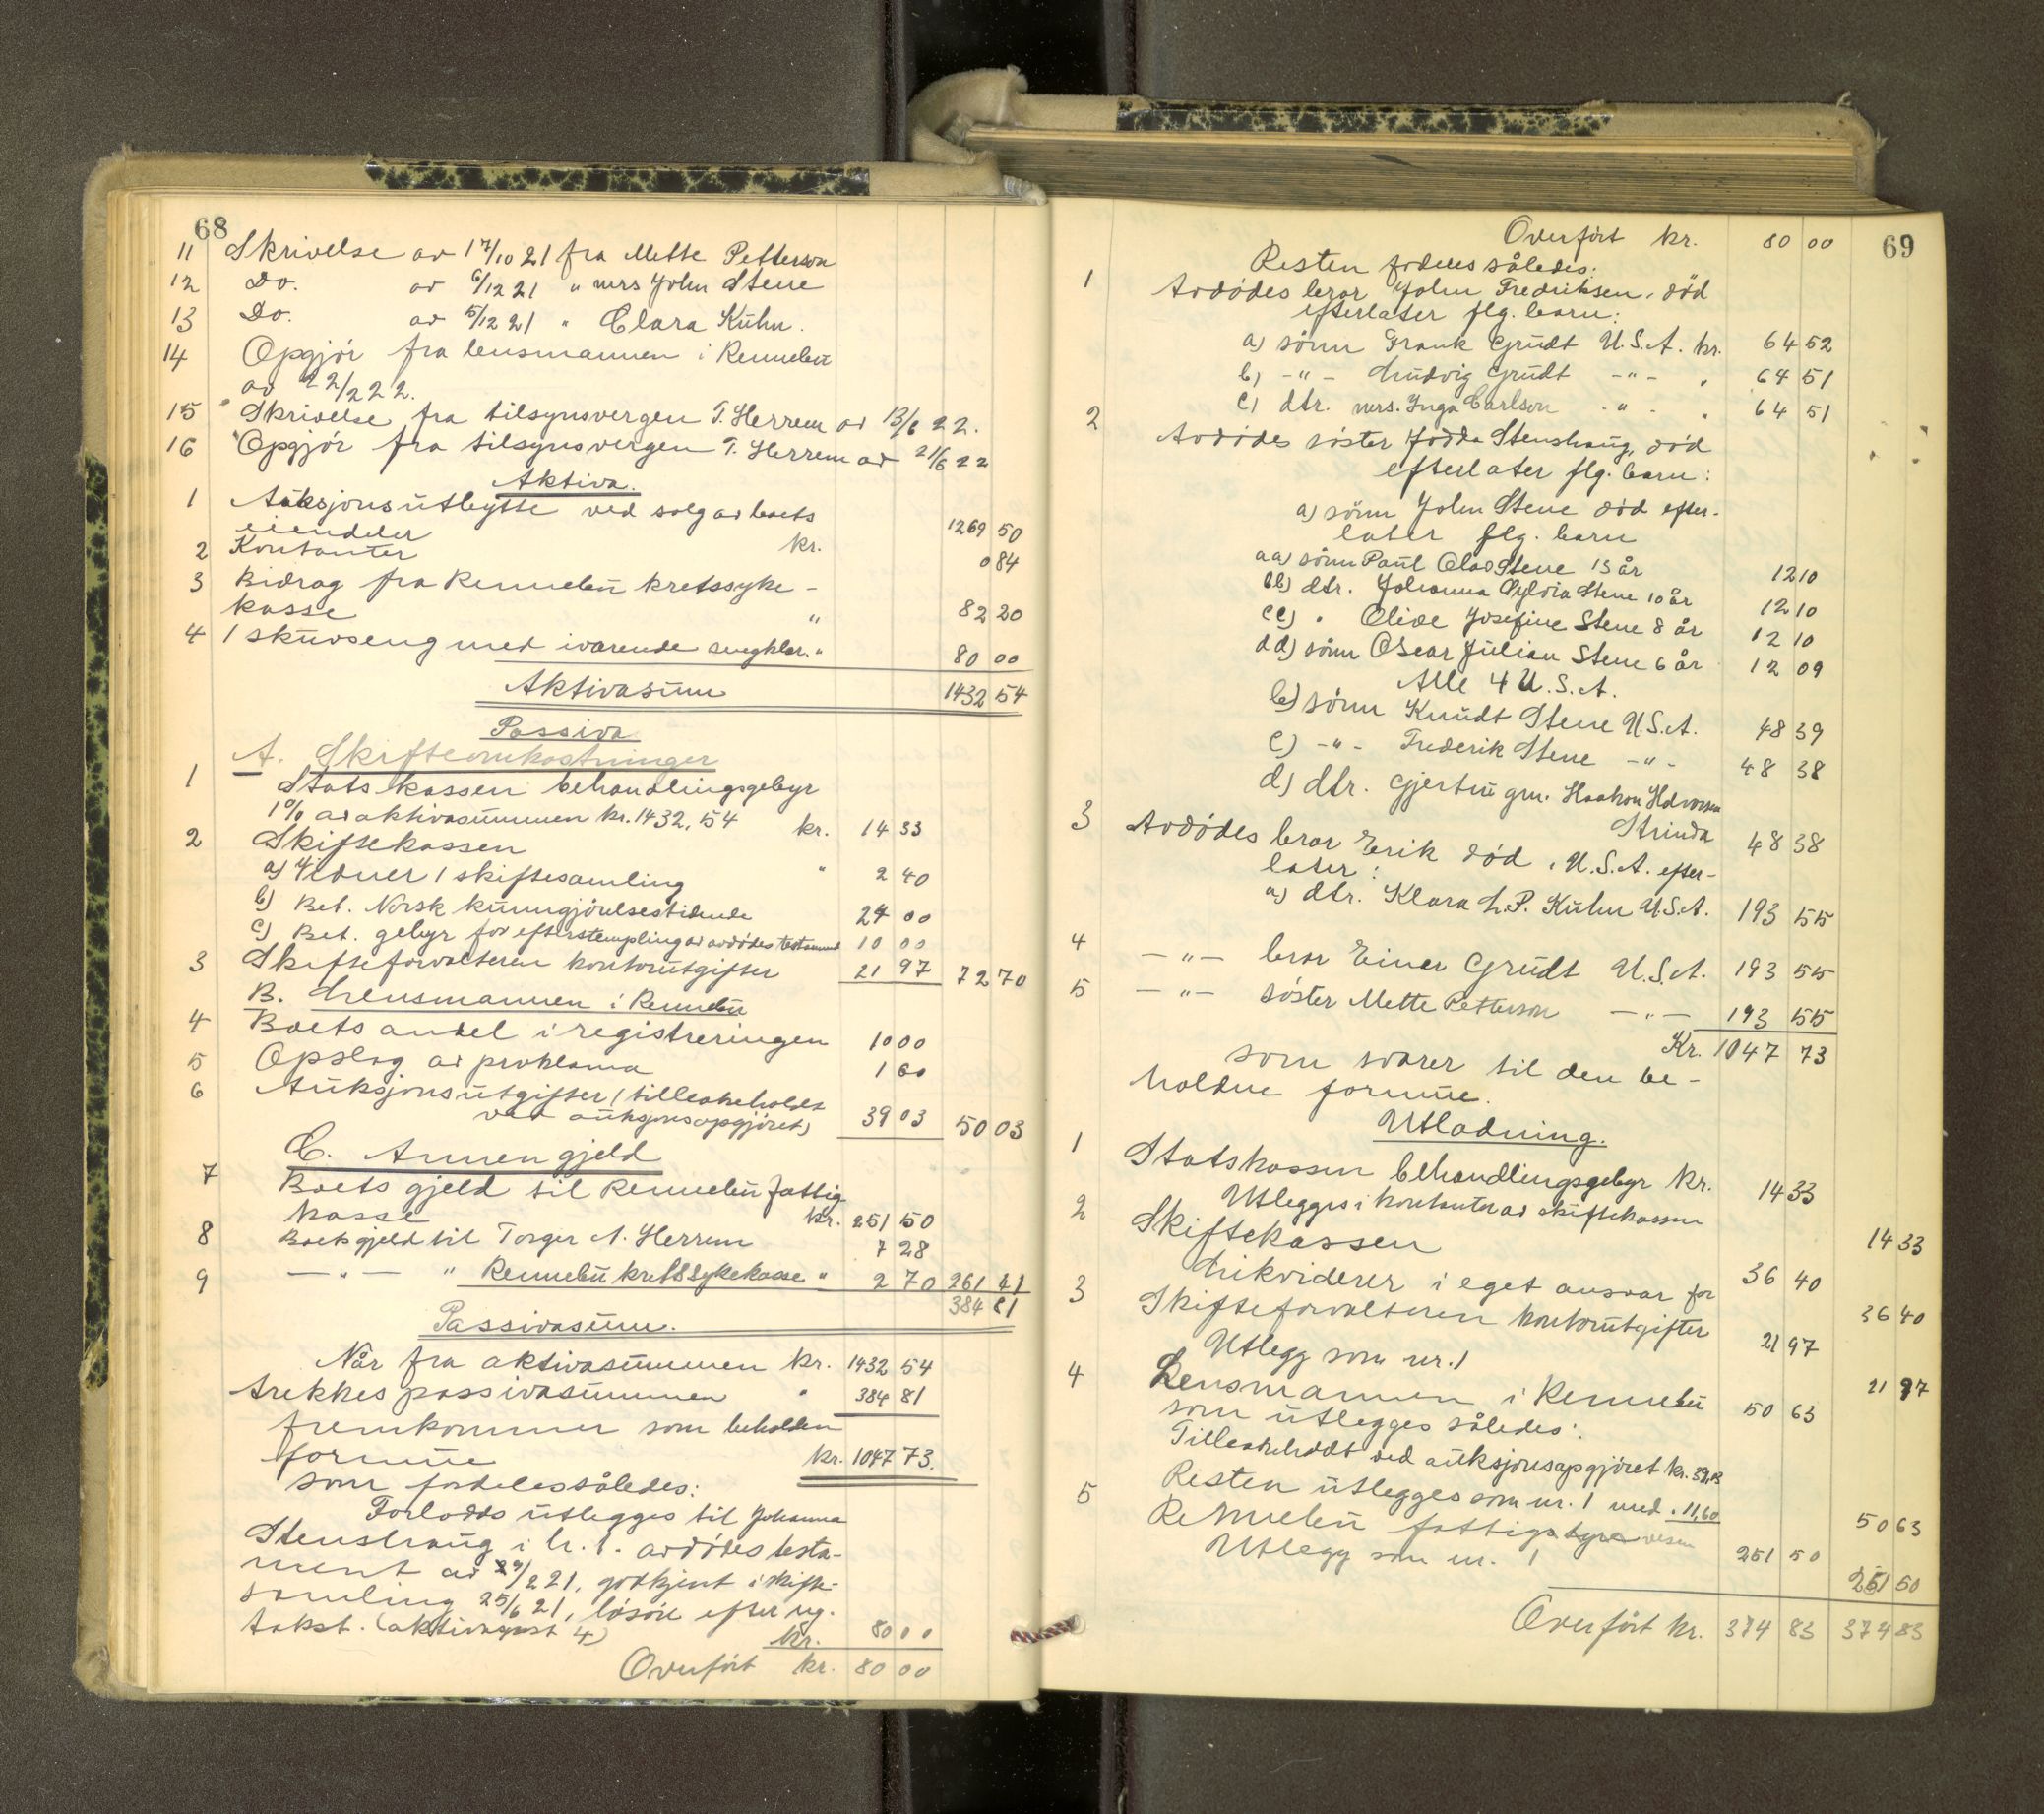 68
11 Skrivelse av 17/10 21 fra Mette Petterson
12 Do. av 6/12 21 " mrs John Stene
13 Do. av 5/12 21 " Clara Kühn.
14 Opgjör fra lensmannen i Rennebu
av 22/2 22.
15 Skrivelse fra tilsynsvergen T. Herrem av 13/6 22.
16 Opgjör fra tilsynsvergen T. Herrem av 21/6 22
Aktiva.
1 Auksjonsutbytte ved salg av boets
eiendeler kr. 1269 50
2 Kontanter 0 84
3 Bidrag fra Rennebu kretssyke-
kasse " 82 20
4 1 skuvseng med ivärende sengklær. " 80 00
Aktivasum 1432 54
Passiva
A. Skifteomkostninger
1 Statskassen behandlingsgebyr
1% av aktivasummen kr. 1432,54 kr. 14 33
2 Skiftekassen
a) Vidner 1 skiftesamling " 2 40
b) Bet. Norsk kunngjörelsestidende 24 00
c) Bet. gebyr for efterstempling av avdödes testament 10 00
3 Skifteforvalteren kontorutgifter 21 97 72 70
B. Lensmannen i Rennebu
4 Boets andel i registreringen 10 00
5 Opslag av proklama 1 60
6 Auksjonsutgifter (tilbakeholdt
ved auksjonsopgjöret) 39 03 50 03
C. Annen gjeld
7 Boets gjeld til Rennebu fattig
kasse kr. 251 50
8 Boets gjeld til Torger A. Herrem 7 28
9 — " — " Rennebu kretssykekasse " 2 70 261 41
384 81
Passivasum.
Når fra aktivasummen kr. 1432 54
trekkes passivasummen " 384 81
fremkommer som beholden
formue kr. 1047 73.
som fordeles således:
Forlodds utlegges til Johanna
Stenshaug i h. t. avdödes testa-
ment av 29/2 21, godkjent i skifte-
samling 25/6 21, lösöre efter reg.
takst. (aktivapost 4) kr. 80 00
Overfört kr. 80 00
69
Overfört kr. 80 00
Resten fordeles således:
1 Avdödes bror John Fredriksen, död
efterlater flg. barn:
a) sönn Frank Grudt U.S.A. kr. 64 52
b) - " - Ludvig Grudt - " - " 64 51
c) dtr. mrs. Inga Carlson - " - " 64 51
2 Avdödes söster Jodda Stenshaug, död
efterlater flg. barn:
a) sönn John Stene död efter-
later flg. barn
aa) sönn Paul Olav Stene 13 år 12 10
bb) dtr. Johanna Sylvia Stene 10 år 12 10
cc) " Olive Josefine Stene 8 år 12 10
dd) sönn Oscar Julian Stene 6 år 12 09
Alle 4 U.S.A.
b) sönn Knudt Stene U.S.A. 48 39
c) - " - Frederik Stene - " - 48 38
d) dtr. Gjertru gm. Haakon Halvorsen
Strinda 48 38
3 Avdödes bror Erik död i U.S.A. efter-
later:
a) dtr. Klara L.P. Kühn U.S.A. 193 55
4 — " — bror Einar Grudt U.S.A. 193 55
5 — " — söster Mette Petterson — " — 193 55
Kr. 1047 73
som svarer til den be-
holdne formue.
Utlodning.
1 Statskassen behandlingsgebyr kr. 14 33
Utlegges i kontanter av skiftekassen 14 33
2 Skiftekassen 36 40
Likviderer i eget ansvar for 36 40
3 Skifteforvalteren kontorutgifter 21 97
Utlegg som nr. 1 21 97
4 Lensmannen i Rennebu 50 63
som utlegges således:
Tilbakeholdt ved auksjonsopgjöret kr. 39,03
Resten utlegges som nr. 1 med " 11,60 50 63
5 Rennebu fattigstyre vesen 251 50
Utlegg som nr. 1 251 50
Overfört kr. 374 83 374 83